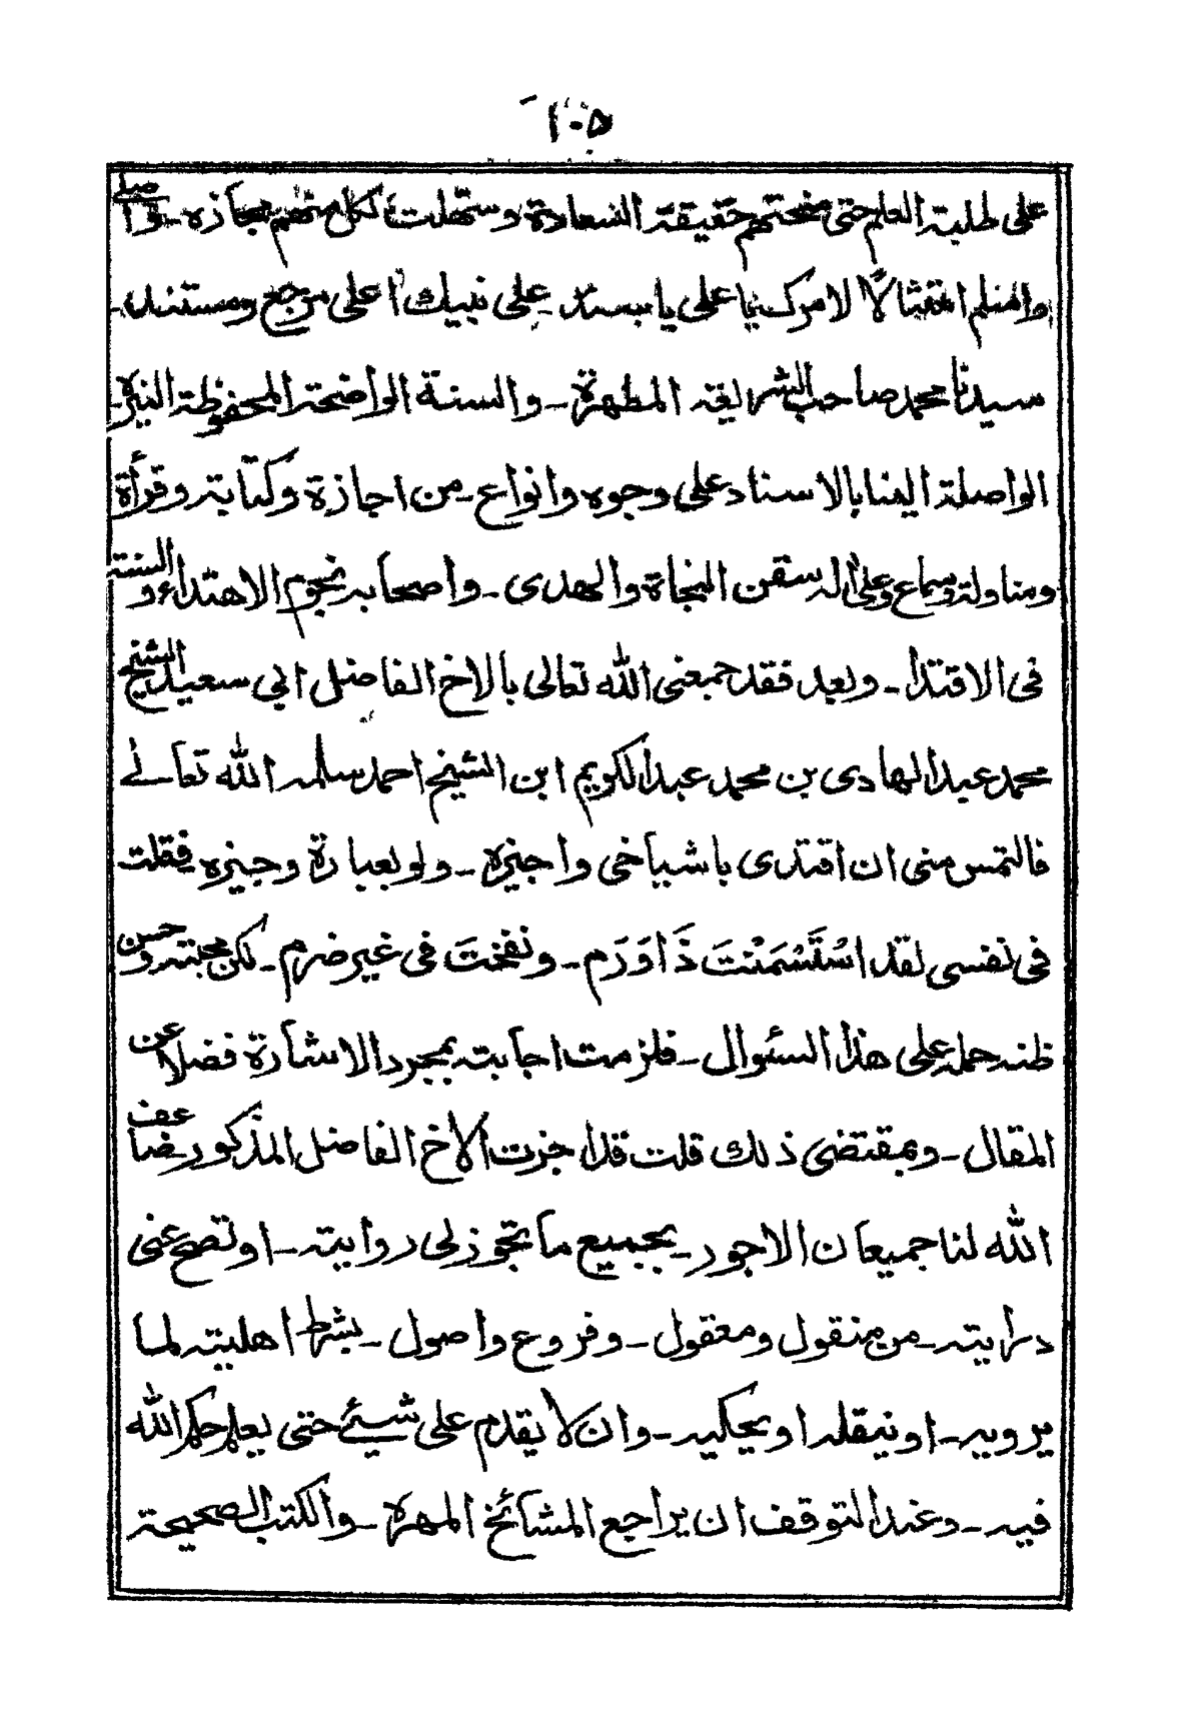 ١٠٥
على طلبة العلم حتى منحتهم حقيقة السعادة وسهلت لكل منهم مجازه۔ واصلى
واسلم امتثالًا لامرك يا على يا سند۔ على نبيك اعلى مرجع ومستند۔
سيدنا محمد صاحب الشريعة المطهرة۔ والسنة الواضحة المحفوظة النيرة۔
الواصلة الينا بالاسناد على وجوه وانواع۔ من اجازة وكتابة وقرأة
ومناولة وسماع وعلى اله سفن النجاة والهدى۔ واصحابه نجوم الاهتداء والسنة
فى الاقتدا۔ وبعد فقد جمعنى الله تعالى بالاخ الفاضل ابي سعيد الشيخ
محمد عبد الهادى بن محمد عبد الكريم ابن الشيخ احمد سلمه الله تعالے
فالتمس منى ان اقتدى باشياخى واجيزه۔ ولو بعبارة وجيزه فقلت
فى نفسى لقد اسْتَسْمَنْتَ ذَا وَرَم۔ ونفختَ فى غير ضرم۔ لكن محبته وحسن
ظنه حمله على هذا السئوال۔ فلزمت اجابته بمجرد الاشارة فضلا عن
المقال۔ وبمقتضى ذلك قلت قد اجزت الاخ الفاضل المذكور۔ ضاعف
الله لنا جميعا ن الاجور۔ بجميع ما تجوز لى روايته۔ او تصح عنى
درايته۔ من منقول ومعقول۔ وفروع واصول۔ بشرط اهليته لما
يرويه۔ او ينقله او يحكيه۔ وان لا يقدم على شيئ حتى يعلم حكم الله
فيه۔ وعند التوقف ان يراجع المشائخ المهرة۔ والكتب الصحيحة